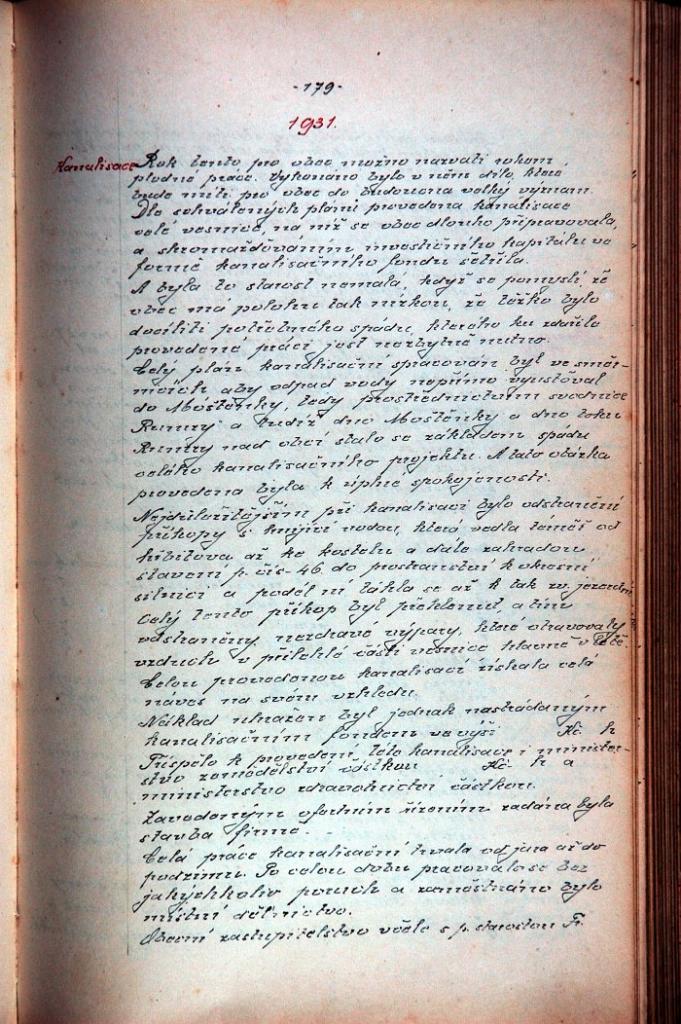 -179-
1931.
Kanalisace Rok tento pro obec možno nazvati rokem
plodné práce. Vykonáno bylo v něm dílo, které
bude míti pro obec do budoucna velký význam.
Dle schválených plánů provedena kanalisace
celé vesnice, na níž se obec dlouho připravovala,
a shromažďováním investičního kapitálu ve
formě kanalisačního fondu šetřila.
A byla to starost nemalá, když se pomyslí, že
obec má polohu tak nízkou, že těžko bylo
docíliti potřebného spádu, kterého ku zdařile
provedené práci jest nezbytně nutno.
Celý plán kanalisační spracován byl ve smě-
rnicích aby odpad vody nepřímo vyustoval
do Moštěnky, tedy prostřednictvím svodnice
a tudíž dno Moštěnky a dno toku
nad obcí stalo se základem spádu
celého kanalisačního projektu. A tato otázka
provedena byla k úplné spokojenosti.
Nejdůležitějším při kanalisaci bylo odstranění
příkopy s hnijící vodou, která vedla téměř od
hřbitova až ke kostelu a dále zahradou
stavení p. čís. 46 do prostranství k okresní
silnici a podél ní táhla se až k tak zv.
Celý tento příkop byl překlenut, a tím
odstraněny nezdravé výpary, které otravovaly
vzduch v přilehlé části vesnice hlavně v létě.
Celou provedenou kanalisací získala celá
náves na svém vzhledu.
Náklad uhražen byl jednak nastřádaným
kanalisačním fondem ve výši Kč h
Přispělo k provedení této kanalisace i minister-
stvo zemědělství částkou Kč h a
ministerstvo zdravotnictví částkou.
Zavedeným ofertním řízením zadána byla
stavba firmě.
Celá práce kanalisační trvala od jara až do
podzimu. Po celou dobu pracovalo se bez
jakýchkoliv poruch a zaměstnáno bylo
místní dělnictvo.
Obecní zastupitelstvo v čele s p. starostou Fr.